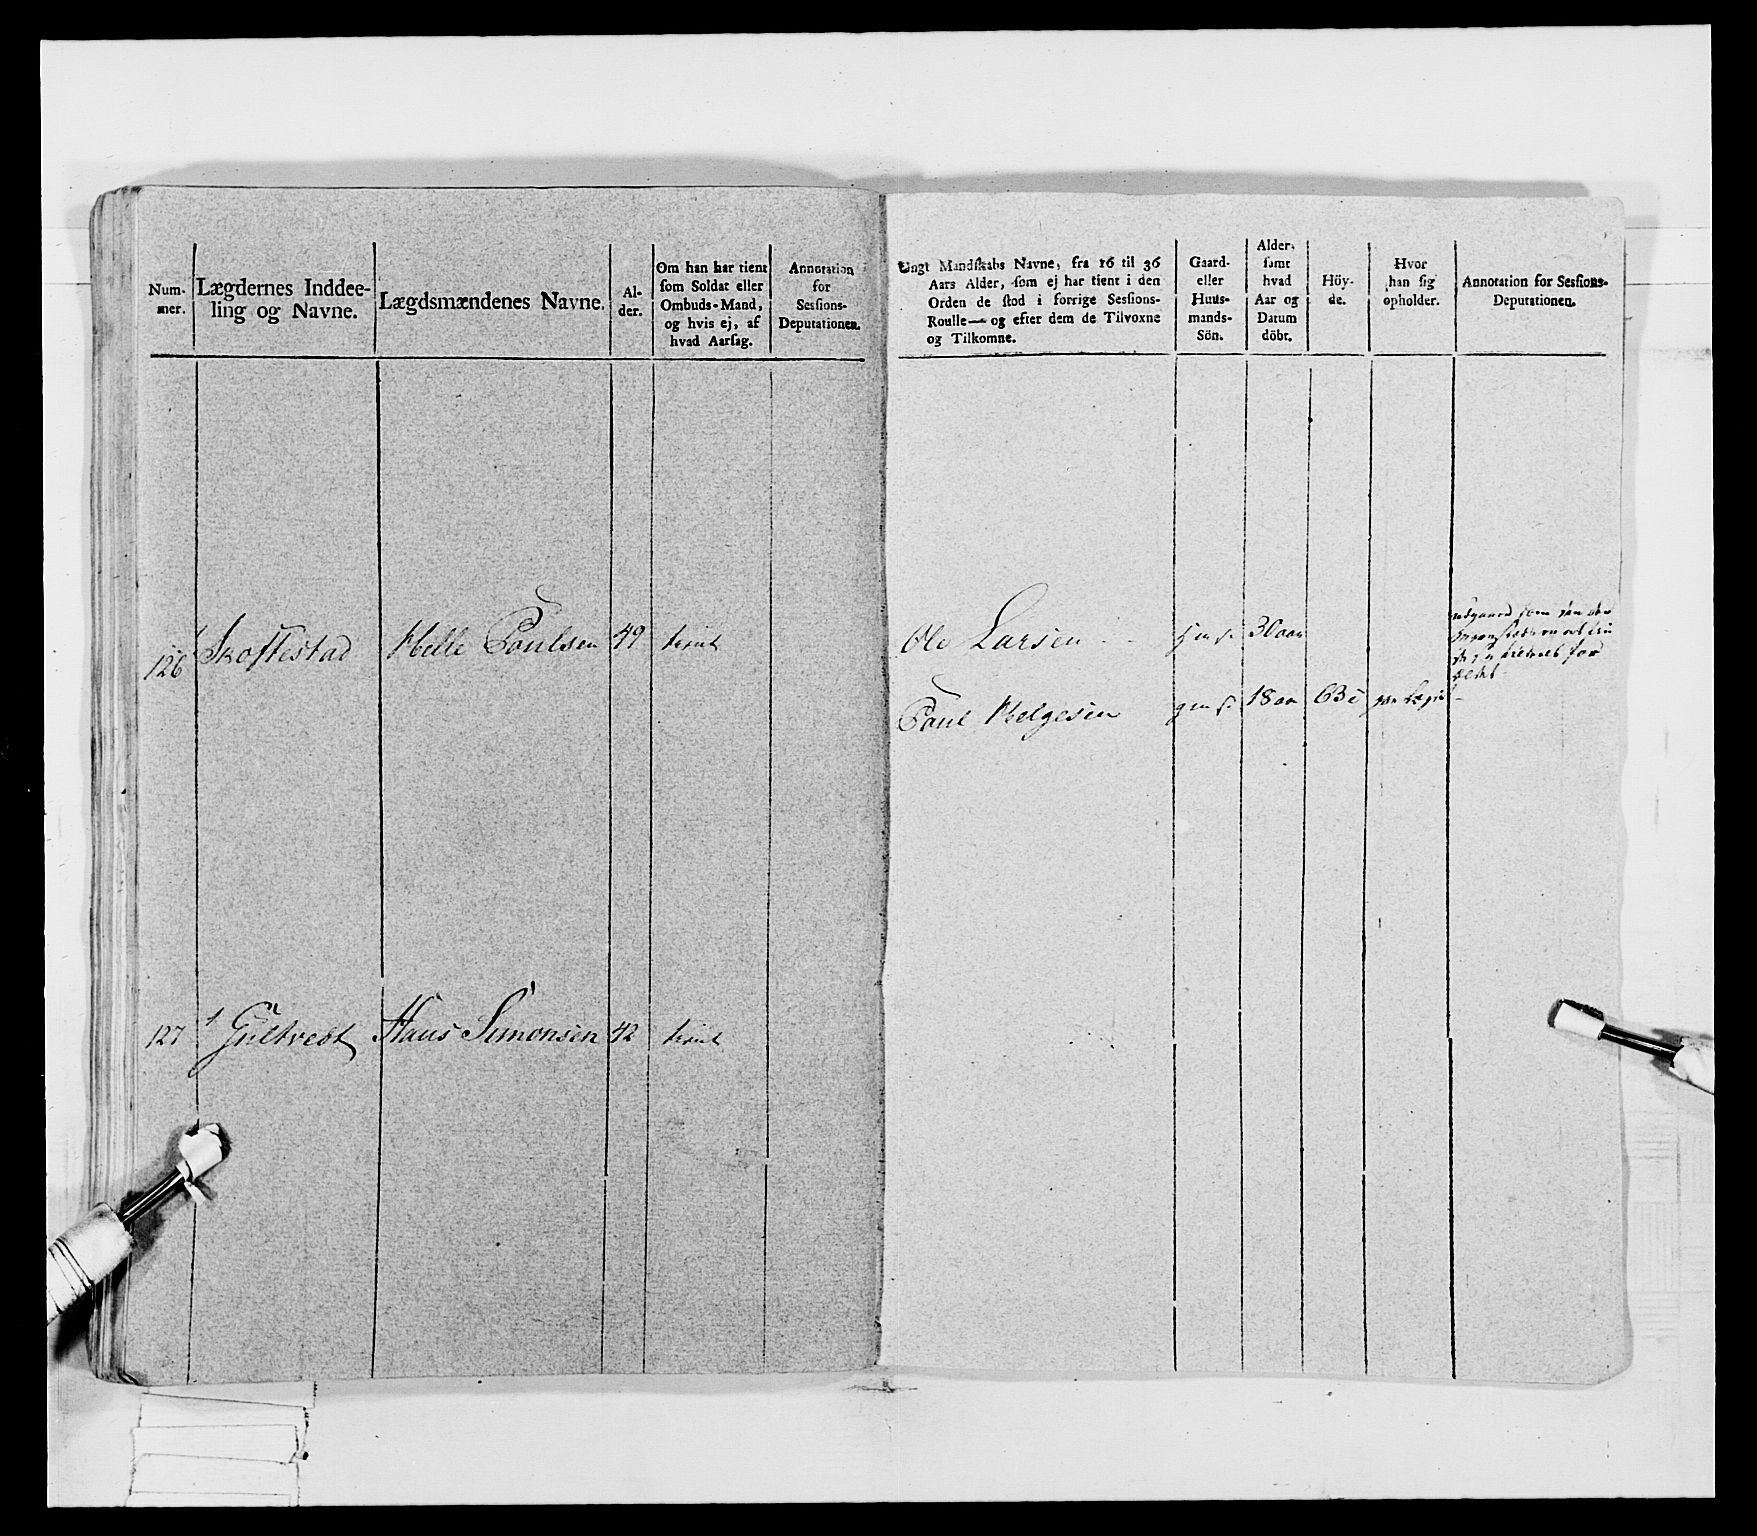 Num-
mer.
Lægdernes Inddee-
ling og Navne.
Lægdsmændenes Navne.
Al-
der.
Om han har tient
som Soldat eller
Ombuds-Mand,
og hvis ej, af
hvad Aarsag.
Annotation
for
Sessions-
Deputationen.
126 Skoftestad Helle Poulsen 49 tient
127 Gultvedt Hans Simonsen 42 tient
Ungt Mandskabs Navne, fra 16 til 36
Aars Alder, som ej har tient i den
Orden de stod i forrige Sessions-
Roulle— og efter dem de Tilvoxne
og Tilkomne.
Gaard-
eller
Huus-
mands-
Sön.
Alder,
samt
hvad
Aar og
Datum
döbt.
Höy-
de.
Hvor
han sig
opholder.
Annotation for Sessions-
Deputationen.
Ole Larsen 30 aar
Poul Helgesen gm s. 18 aar